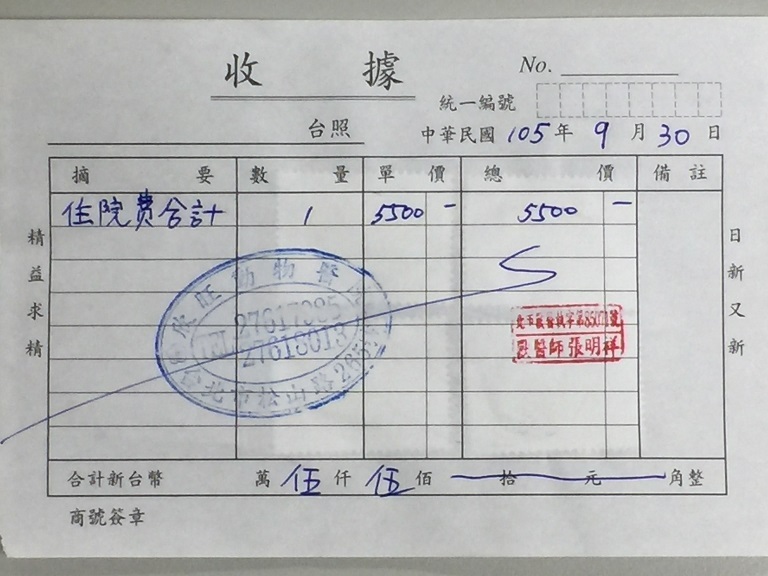 收據
No.
統一編號
台照
中華民國 105 年 9 月 30 日
摘要 數量 單價 總價 備註
住院費合計 1 5500 - 5500 -
精益求精
日新又新
動物醫
TEL 27617985
27618013
台北市松山路
獸醫師 張明祥
合計新台幣 萬 伍 仟 伍 佰 拾 元 角整
商號簽章